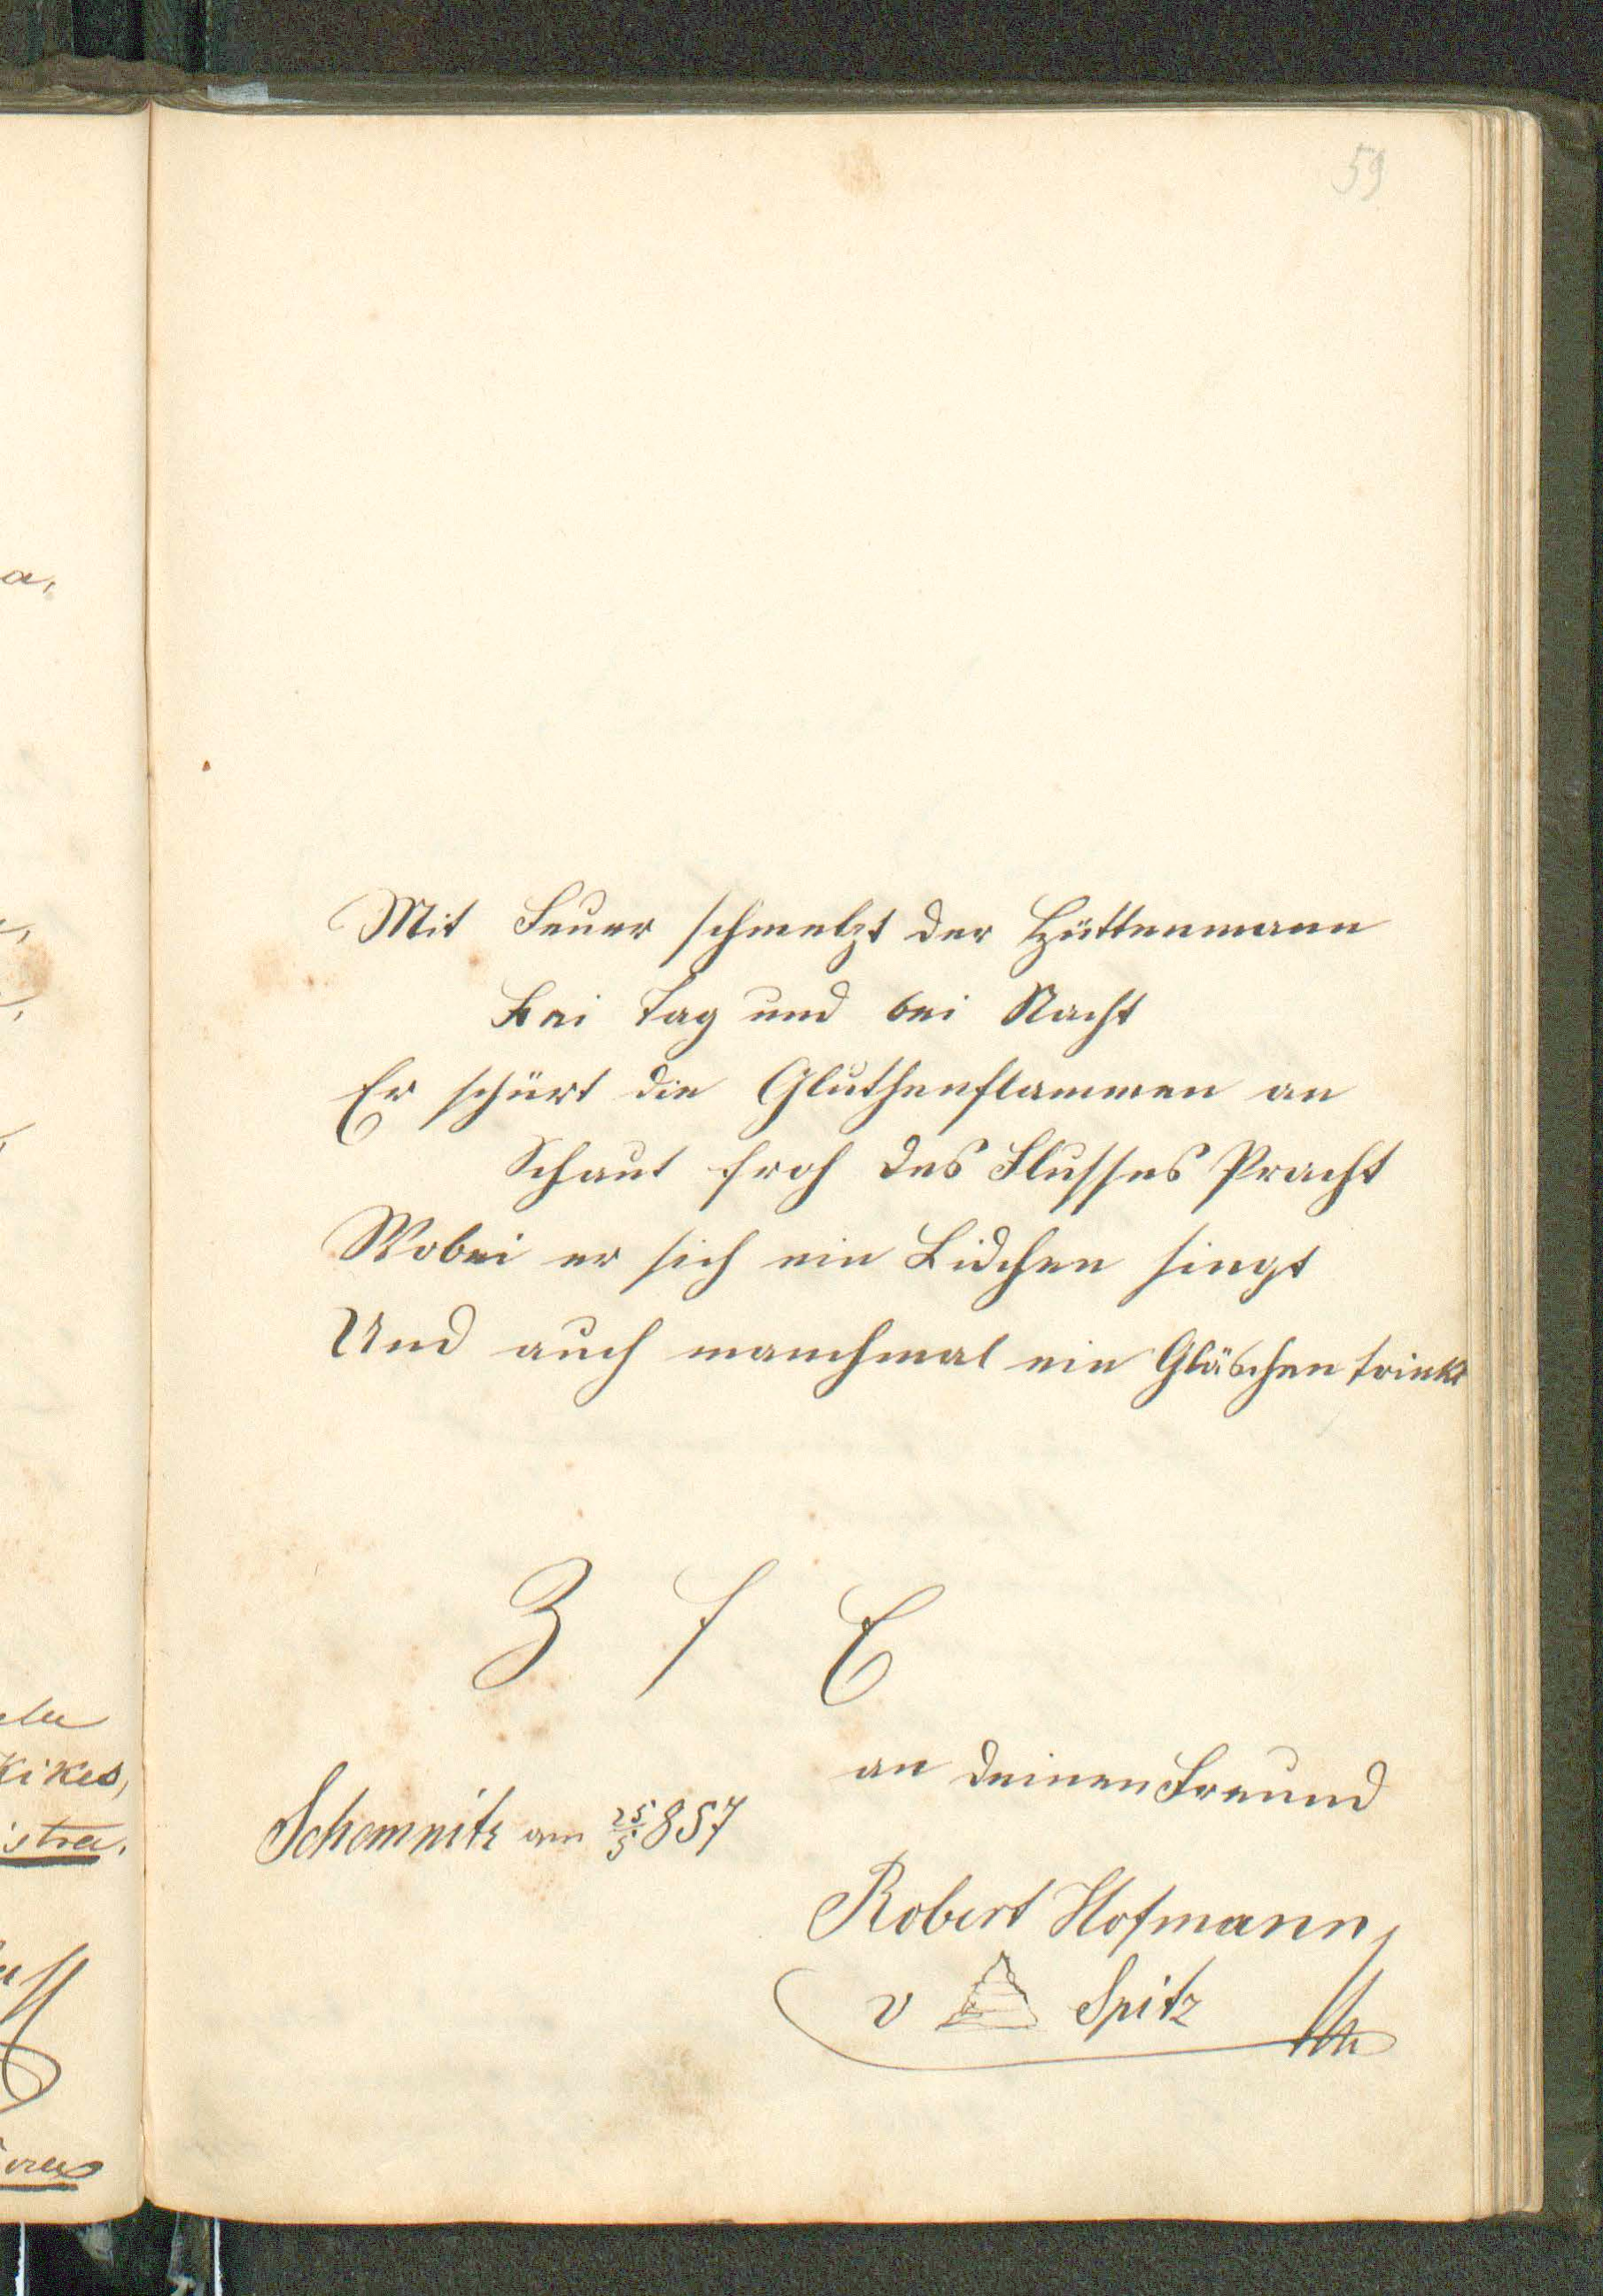 59
Mit Feuer schmelzt der Hüttenmann
Bei Tag und bei Nacht
Er schürt die Gluthenflammen an
Schaut froh des Flusses Pracht
Wobei er sich ein Lidchen singt
Und auch manchmal ein Gläschen trinkt
Z f E
an deinen Freund
Schemnitz am 25/5 857
Robert Hofmann
v Spitz
a,
kikes,
istra.